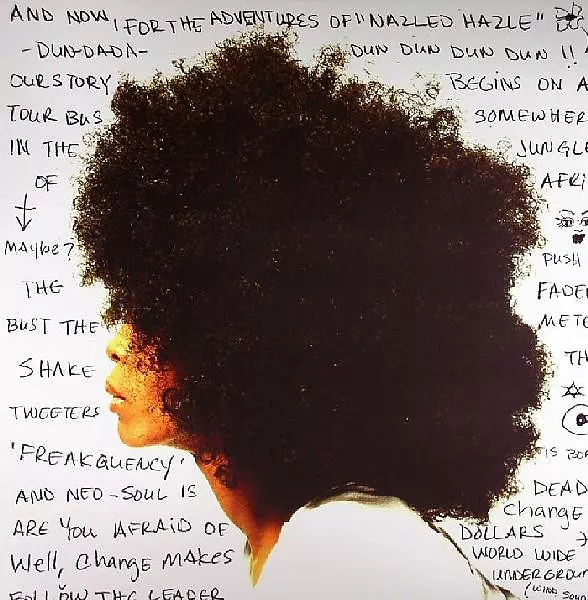 AND NOW, FOR THE ADVENTURES OF "NAZLED HAZLE"
-DUN-DADA- DUN DUN DUN DUN !!
OUR STORY BEGINS ON A
TOUR BUS SOMEWHER
IN THE JUNGLE
OF AFRI
MAYBE?
PUSH
THE FADE
BUST THE METE
SHAKE TH
TWEETERS
'FREAKQUENCY' IS BOR
AND NEO-SOUL IS DEAD
ARE YOU AFRAID OF Change
Well, Change MAKES DOLLARS
WORLD WIDE
FOLLOW THE LEADER UNDERGROUN